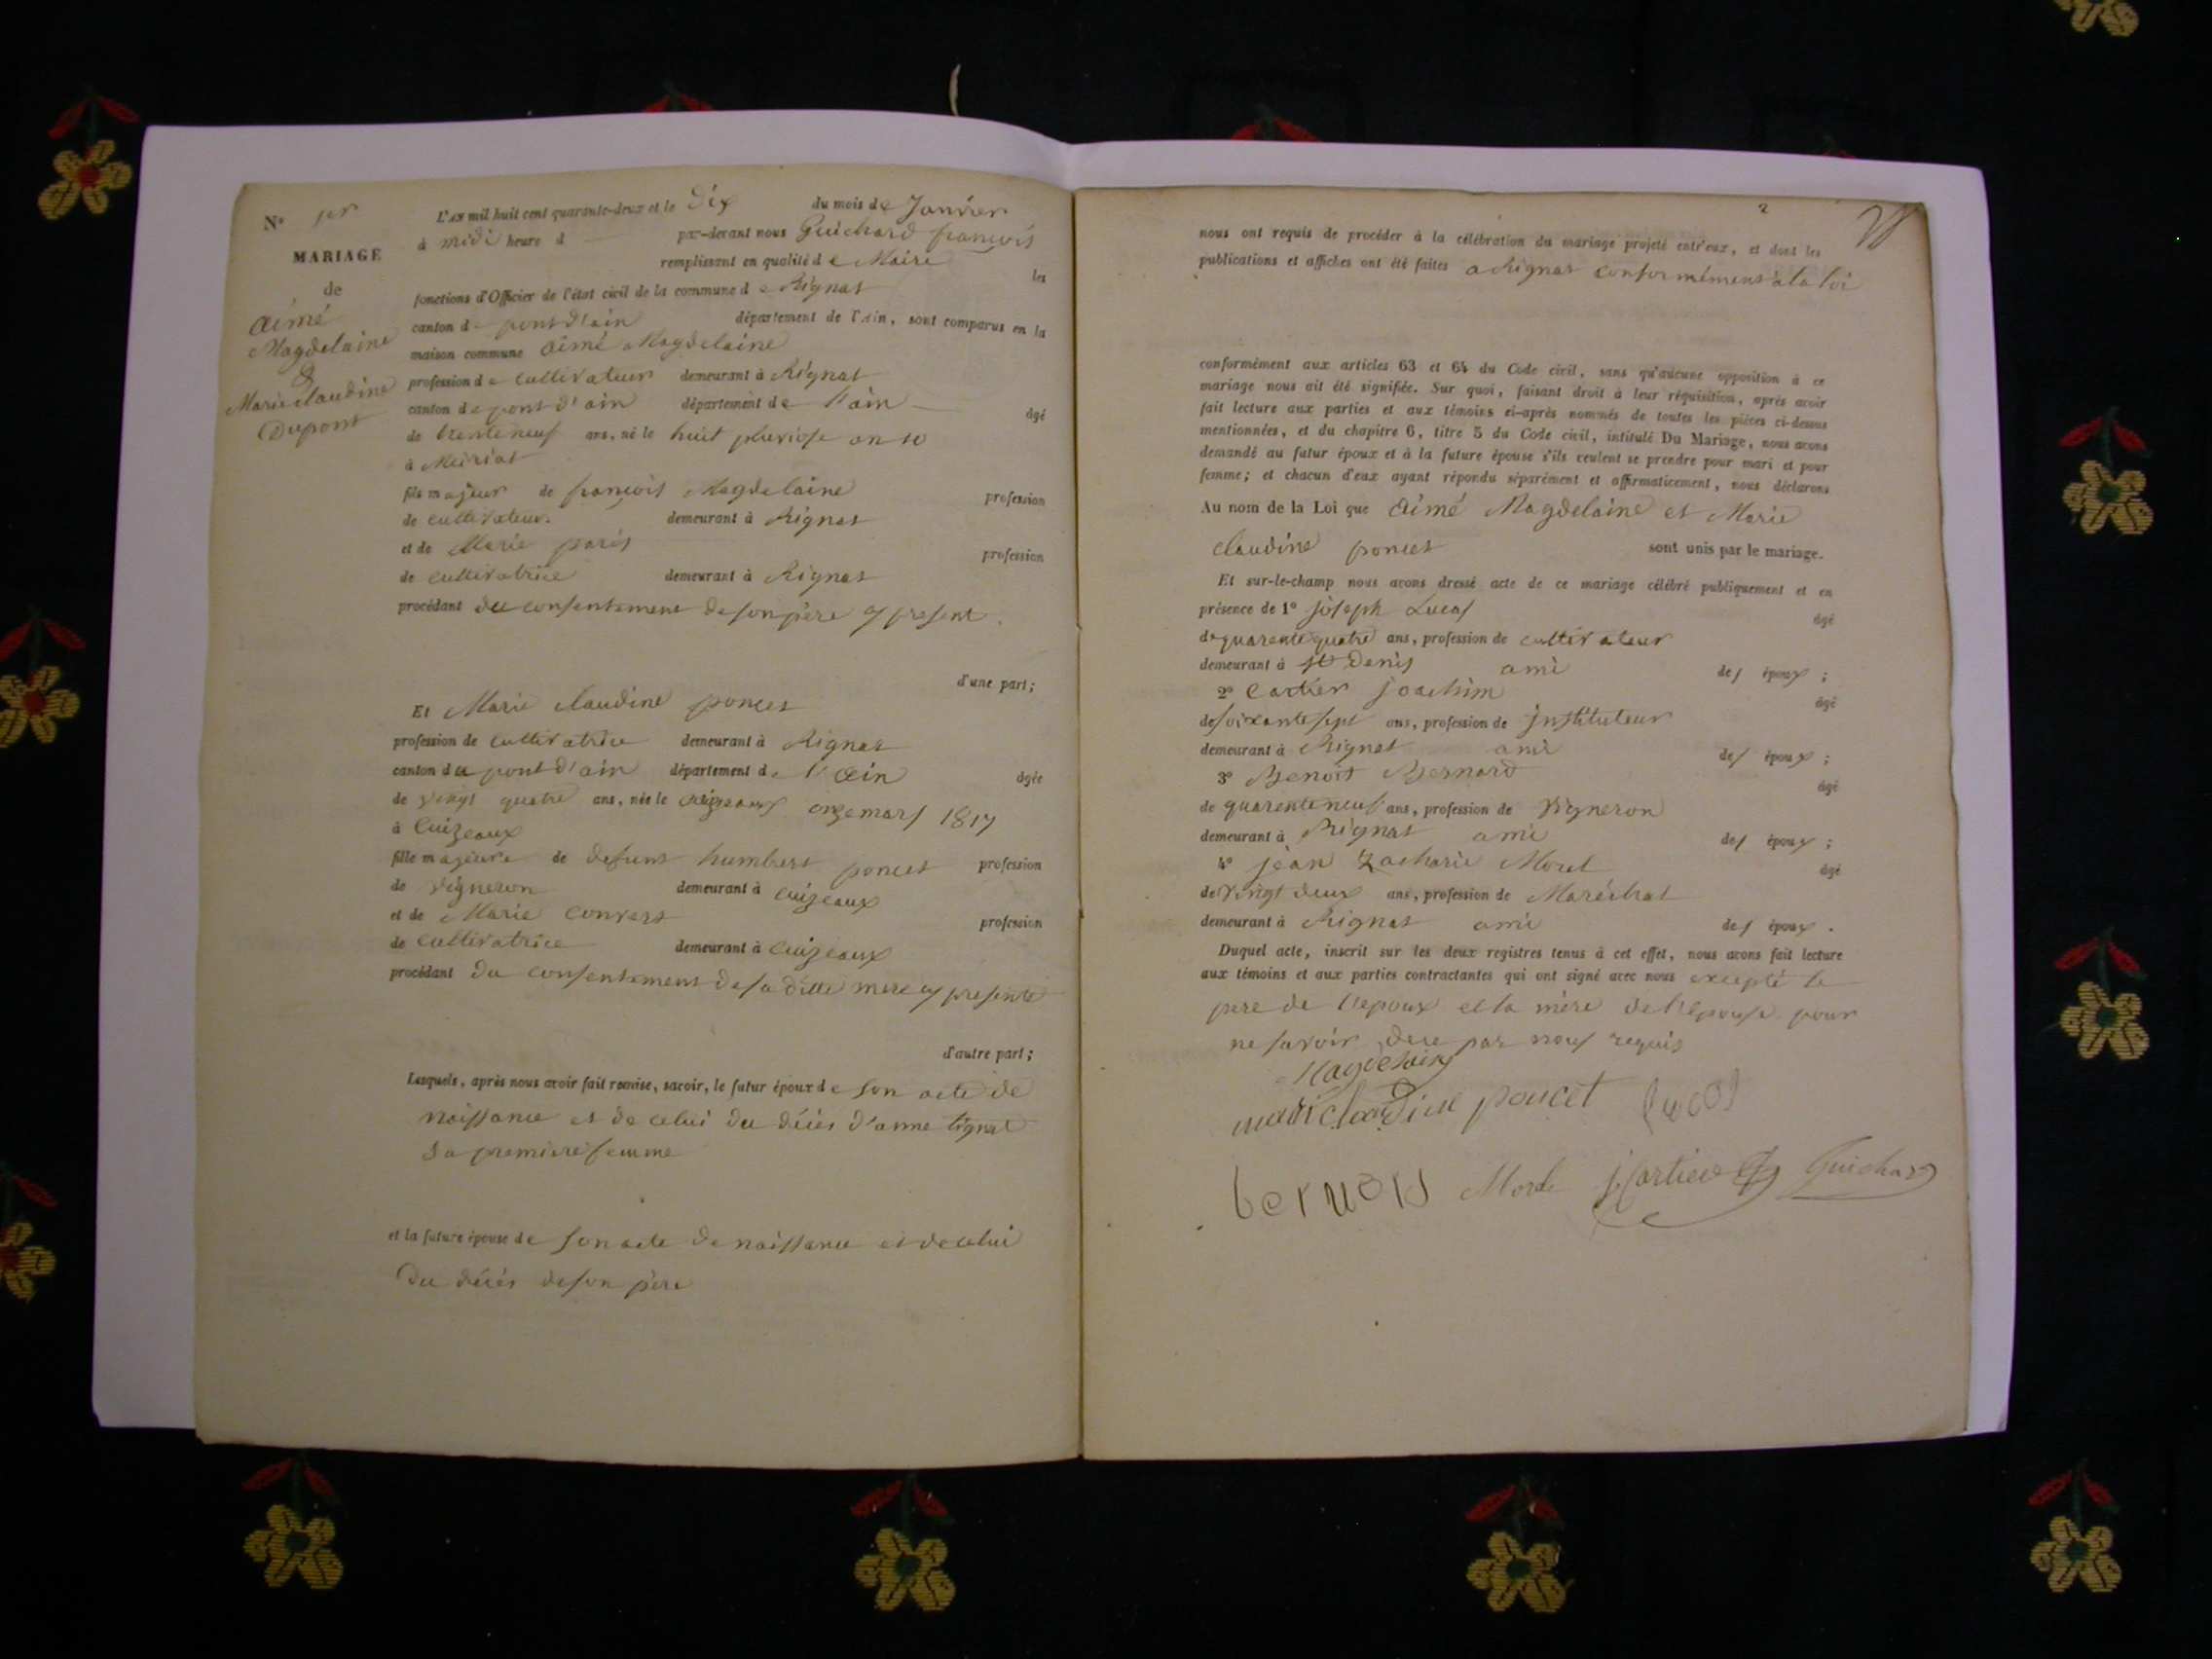 N° 1er
MARIAGE
de
aimé
Magdelaine
&
Marie claudine
Dupont
L'AN mil huit cent quarante-deux et le Dix du mois de Janvier
à midi heure d — par-devant nous Guichard françois
remplissant en qualité de Maire les
fonctions d'Officier de l'état civil de la commune de Rignat
canton de pont d'ain département de l'Ain, sont comparus en la
maison commune aimé Magdelaine
profession de cultivateur demeurant à Rignat
canton de pont d'ain département de l'ain — âgé
de trente neuf ans, né le huit pluviose an 10
à Meiriat
fils majeur de françois Magdelaine profession
de cultivateur demeurant à Rignat
et de Marie paris profession
de cultivatrice demeurant à Rignat
procédant du consentement de son père cy present.
d'une part;
Et Marie claudine poncet
profession de cultivatrice demeurant à Rignat
canton du pont d'ain département de l'ain âgée
de vingt quatre ans, née le cuizeaux onze mars 1817
à Cuizeaux
fille majeure de defunt humbert poncet profession
de vigneron demeurant à cuizeaux
et de Marie convert profession
de cultivatrice demeurant à Cuizeaux
procédant du consentement de sa ditte mere cy presente
d'autre part;
Lesquels, après nous avoir fait remise, savoir, le futur époux de son acte de
naissance et de celui du décès d'anne tignat
sa premiere femme
et la future épouse de son acte de naissance et de celui
du décès de son père
2
nous ont requis de procéder à la célébration du mariage projeté entr'eux, et dont les
publications et affiches ont été faites a Rignat conformément à la loi
conformément aux articles 63 et 64 du Code civil, sans qu'aucune opposition à ce
mariage nous ait été signifiée. Sur quoi, faisant droit à leur réquisition, après avoir
fait lecture aux parties et aux témoins ci-après nommés de toutes les pièces ci-dessus
mentionnées, et du chapitre 6, titre 5 du Code civil, intitulé Du Mariage, nous avons
demandé au futur époux et à la future épouse s'ils veulent se prendre pour mari et pour
femme; et chacun d'eux ayant répondu séparément et affirmativement, nous déclarons
Au nom de la Loi que aimé Magdelaine et Marie
claudine poncet sont unis par le mariage.
Et sur-le-champ nous avons dressé acte de ce mariage célébré publiquement et en
présence de 1° joseph Lucas âgé
de quarente quatre ans, profession de cultivateur
demeurant à st Denis ami des époux ;
2° Cartier joachim âgé
de soixante sept ans, profession de instituteur
demeurant à Rignat ami des époux ;
3° Benoit Bernard âgé
de quarente neuf ans, profession de vigneron
demeurant à Rignat ami des époux ;
4° jean Zacharie Morel âgé
de vingt deux ans, profession de Maréchal
demeurant à Rignat ami des époux .
Duquel acte, inscrit sur les deux registres tenus à cet effet, nous avons fait lecture
aux témoins et aux parties contractantes qui ont signé avec nous excepté le
pere de l'epoux et la mère de l'épouse pour
ne savoir, de ce par nous requis
Magdelaine
marie claudine poncet Lucas
bernard Morel j. Cartier Guichard